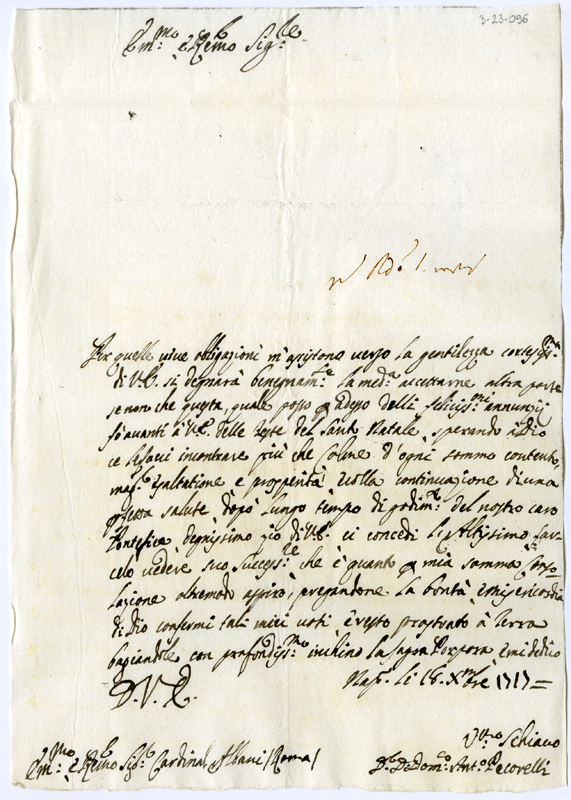 3-23-096
Em.mo e Rev.mo Sig.re
Per quelle vive obligazioni m'assistono verso la gentilezza cortesiss.ma
di V.E. si degnarà benegnam.te la med.a accettarne altra parte
se non che questa, quale posso p adesso delli feliciss.mi annunzij
fò avanti à V.E. delle feste del Santo Natale, sperando à Dio
ce le facci incontrare più che colme d'ogni sommo contento,
mag.r esaltatione e prosperità colla continuazione di una
pfetta salute dopò lungo tempo di godim.to del nostro caro
Pontefice degnissimo zio di V.E. ci concedi l'Altissimo
vedere suo success.re che è quanto p mia somma
lazione oltremodo aspiro, pregandone la bontà, e misericordia
di Dio confermi tali miei voti e resto prostrato à terra
bagiandole con profondiss.mo inchino la sagra Porpora e mi dedico
D. V. E.
Nap. li 18. Xmbre 1717=
Schiavo
Em.mo e Rev.mo Sig.r Cardinal Albani (Roma)
D. Dom.co Ant.o Pecorelli